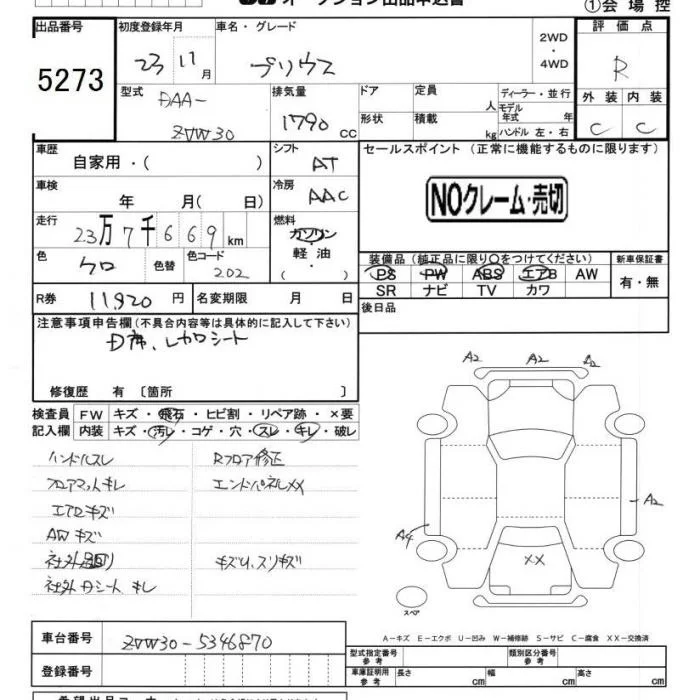 オークション出品申込書
①会場控
出品番号
5273
初度登録年月
23 11月
車名・グレード
プリウス
2WD
・
4WD
評価点
R
外装 内装
C C
型式
DAA-
ZVW30
排気量
1790 CC
ドア
形状
定員
人
積載
kg
ディーラー・並行
モデル
年式 年
ハンドル 左・右
車歴
自家用・( )
シフト
AT
セールスポイント (正常に機能するものに限ります)
NOクレーム・売切
車検
年 月( 日)
冷房
AAC
走行
23万7千669km
燃料
ガソリン
軽油
( ・ )
色
クロ
色替
色コード
202
装備品(純正品に限り○をつけてください)
PS PW ABS エアB AW
SR ナビ TV カワ
新車保証書
有・無
R券 11920円
名変期限 月 日
後日品
注意事項申告欄(不具合内容等は具体的に記入して下さい)
D席、レカロシート
修復歴 有 〔箇所 〕
検査員
記入欄
FW キズ・飛石・ヒビ割・リペア跡・×要
内装 キズ・汚レ・コゲ・穴・スレ・キレ・破レ
ハンドルスレ
Rフロア修正
フロアマットキレ
エンドパネルXX
エアロキズ
AWキズ
キズU、スリキズ
社外Dシートキレ
A2 A2 A2
A2
A4
XX
スペア
A-キズ E-エクボ U-凹み W-補修跡 S-サビ C-腐食 XX-交換済
車台番号 ZVW30-5346870
登録番号
型式指定番号
参考
類別区分番号
参考
車庫証明用
参考
長さ cm
幅 cm
高さ cm